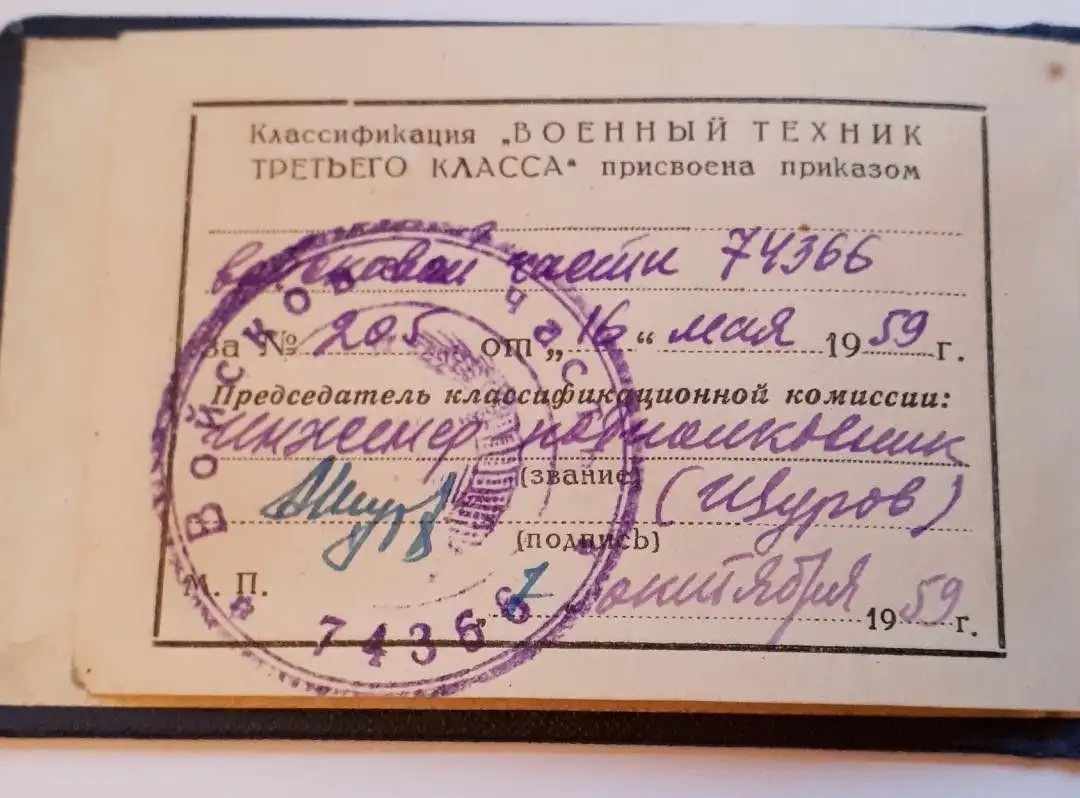 Классификация „ВОЕННЫЙ ТЕХНИК
ТРЕТЬЕГО КЛАССА“ присвоена приказом
войсковой части 74366
за № 205 от „16“ мая 1959 г.
Председатель классификационной комиссии:
инженер подполковник
(звание)
(Щуров)
(подпись)
М. П.
„7“ октября 1959 г.
Войсковая часть
* 74366 *